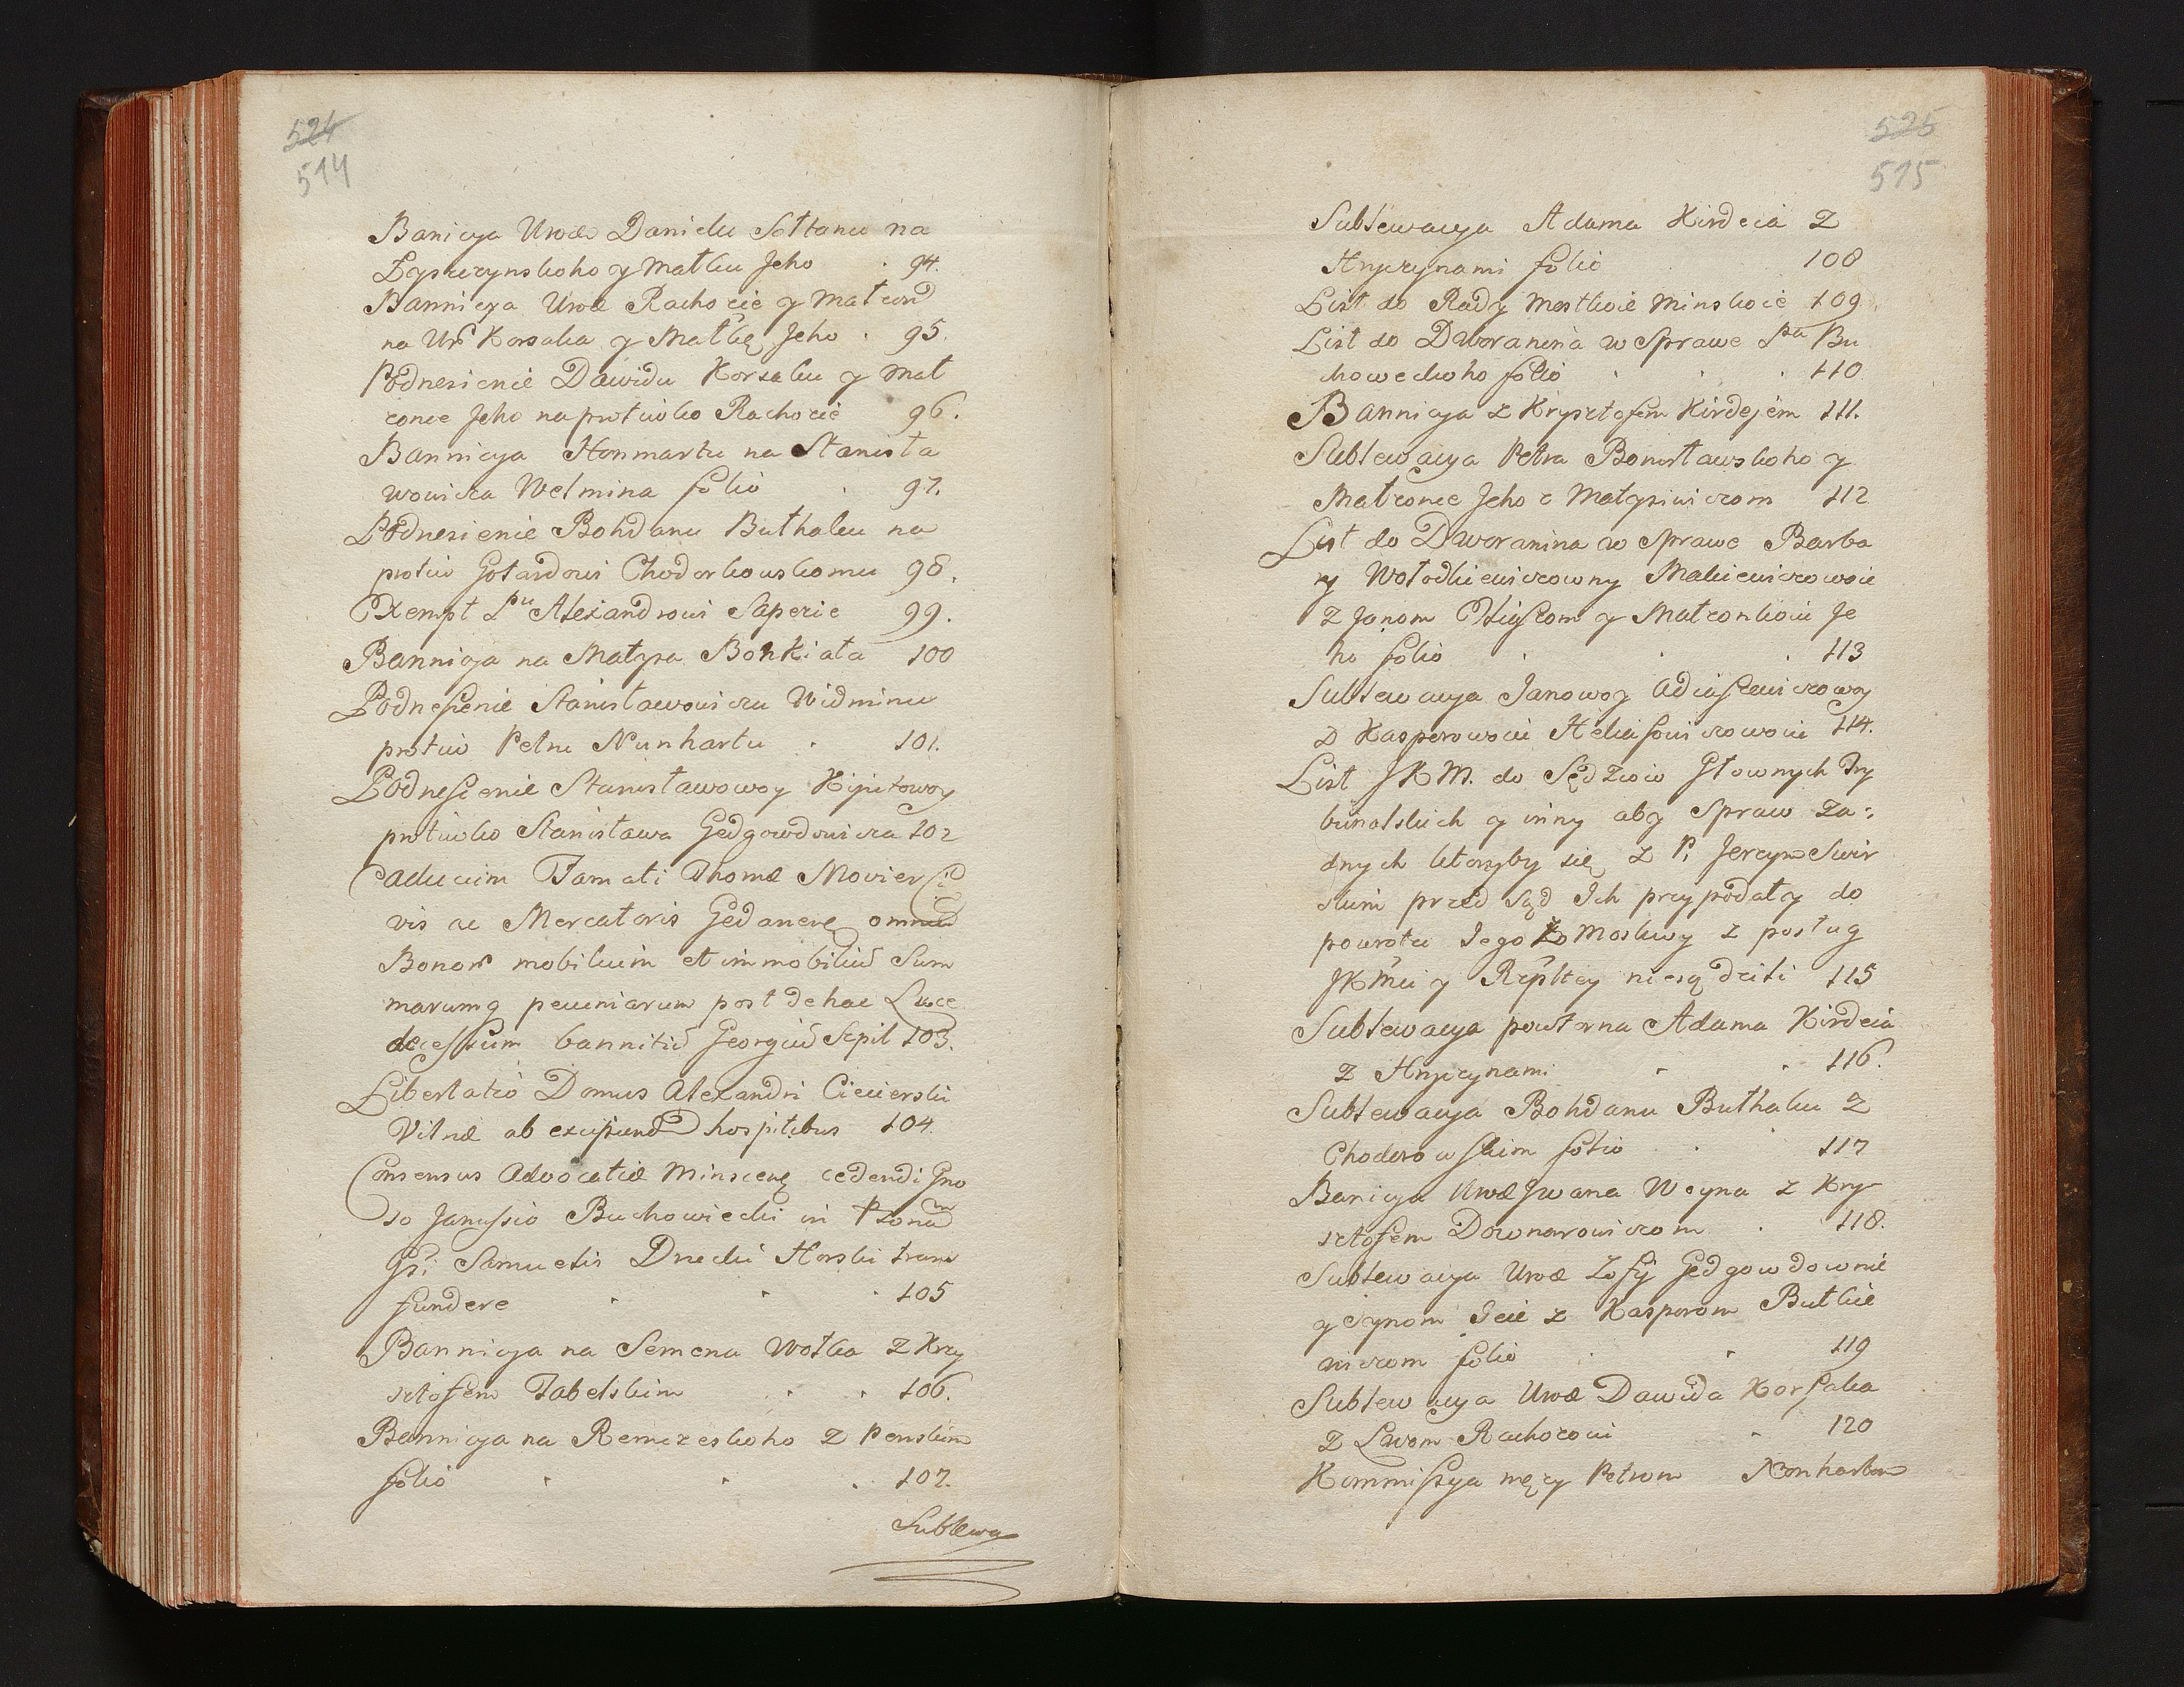 524
514
Banicya Urod Danielu Sołtanu na
Łyszczynskoho y Małku Jeho . 94.
Bannicya Urod Rachozie y Małcond
na Ur Korsaka y Małkę Jeho . 95.
Podnesienie Dawidu Korsaku y Mał
conce Jeho naprotiwko Rachozie 96.
Bannicya Honmartu na Stanisła
wowicza Welmina folio . 97.
Podnesienie Bohdanu Buthaku na
protiw Gotardowi Chodorkouskomu 98.
Exempt Pu Alexandrowi Sapezie 99.
Bannicya na Matysa Bohkiała 100
Podnesienie Stanisławowiczu Widminu
protiw Petru Nunhartu . 101.
Podnesienie Stanisławowoy Kijiłowoy
protiwko Stanisława Gedgowdowicza 102
Caducum Famati Thomæ Movier Ci
vis ac Mercatoris Gedanens omniu
Bonor mobilium et immobiliu Sum
marumq pecuniarum post de hac Luce
decessum banniti Georgiu Sepil 103.
Libertatio Domus Alexandri Ciecierski
Vilnæ ab excipiend hospitibus 104.
Consensus Advocatiæ Minscens cedendi Gno
so Janussio Buchowiecki in Psonam
Gsi Samuelis Drucki Horski trans
fundere . . . 105
Bannicya na Semena Wołka Z Krzy
sztofem Zabelskim . . 106.
Bannicya na Remezeskoho Z Penskim
folio . . . 107.
Sublewa
525
515
Sublewacya Adama Kirdeia Z
Hnyczynami folio 108
List do Rady Mestkoie Minskoie 109.
List do Dworanina w Sprawe Pa Bu
choweckoho folio . . . 110
Bannicya z Krysztofem Kirdejem 111.
Sublewacya Petra Bonisławskoho y
Małconce Jeho z Matysiwiczom 112
List do Dworanina w Sprawe Barba
ry Wołodkiewiczowny Mackiewiczowoie
z Janom y Małconkoiu Je
ho folio . . . 113
Sublewacya Janowoy Adiaszewiczowoy
z Kasperowoiu Heliaszowiczowoiu 114.
List JKM. do Sędziow Głownych Try
bunalskich y inny aby Spraw Za:
dnych ktoryby się z P. Jerzym Swir
skim przed Sąd Ich przypodały do
powrotu Jego Zo Moskwy z posług
JKMci y Rzpltey niesądzili 115
Sublewacya powtorna Adama Kirdeia
z Hnyczynami . . 116.
Sublewacya Bohdanu Buthaku Z
Chodorowskim folio . . 117
Banicya Urod Jwana Woyna z Kry-
sztofem Downarowiczom . 118.
Sublewacya Urod Zofij Gedgowdownie
y Synom Jeie z Kasporom Butkie
wiczom folio . . 119
Sublewacya Urod Dawida Korsaka
Z Lwom Rachozoiu . 120
Kommissya męzy Petrom Nonhartom